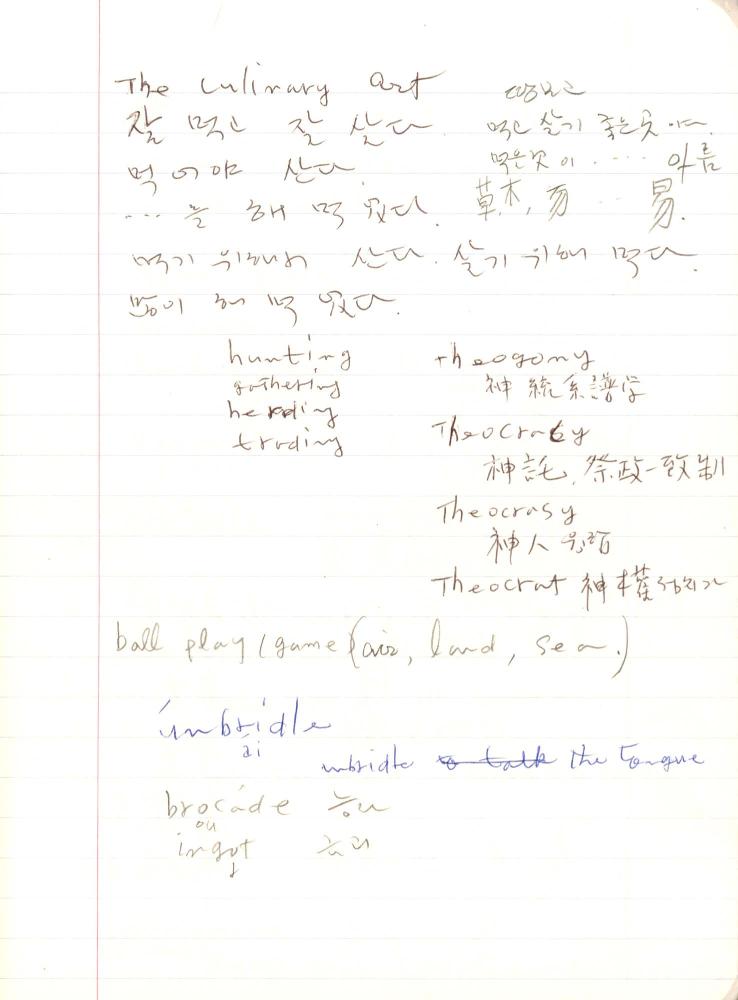 The Culinary art
잘 먹고 잘 살다
먹고 살기 좋은 곳이다.
먹어야 산다.
먹은 것이 ..... 아름
.... 을 해 먹었다.
草木, .... 易.
먹기 위해서 산다. 살기 위해 먹다.
많이 해 먹었다.
hunting
gathering
herding
trading
theogony
神統系譜学
Theocracy
神託, 祭政一致制
Theocrasy
神人
Theocrat 神権정치가
ball play / game (air, land, sea.)
únbrídle
ai
unbridle the tongue
brocade
ou
ingot